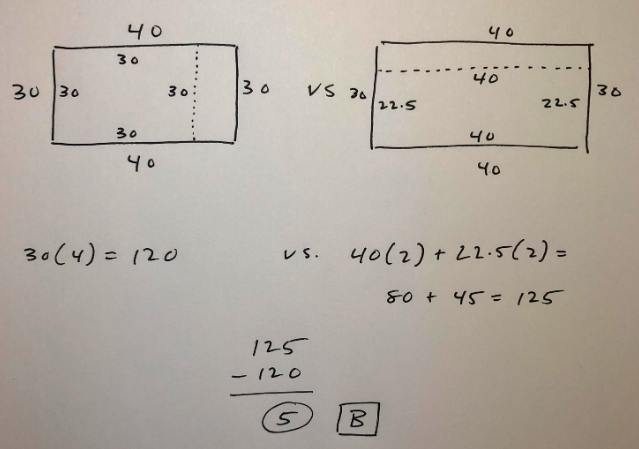 40 40
30 30 30 30 30 vs 30 40 30
30 22.5 22.5
40 40
40
30(4) = 120 vs. 40(2) + 22.5(2) =
80 + 45 = 125
125
- 120
5 B